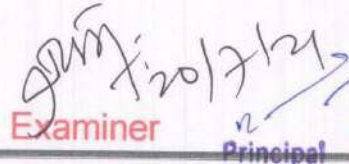 20/7/21
Examiner
Principal